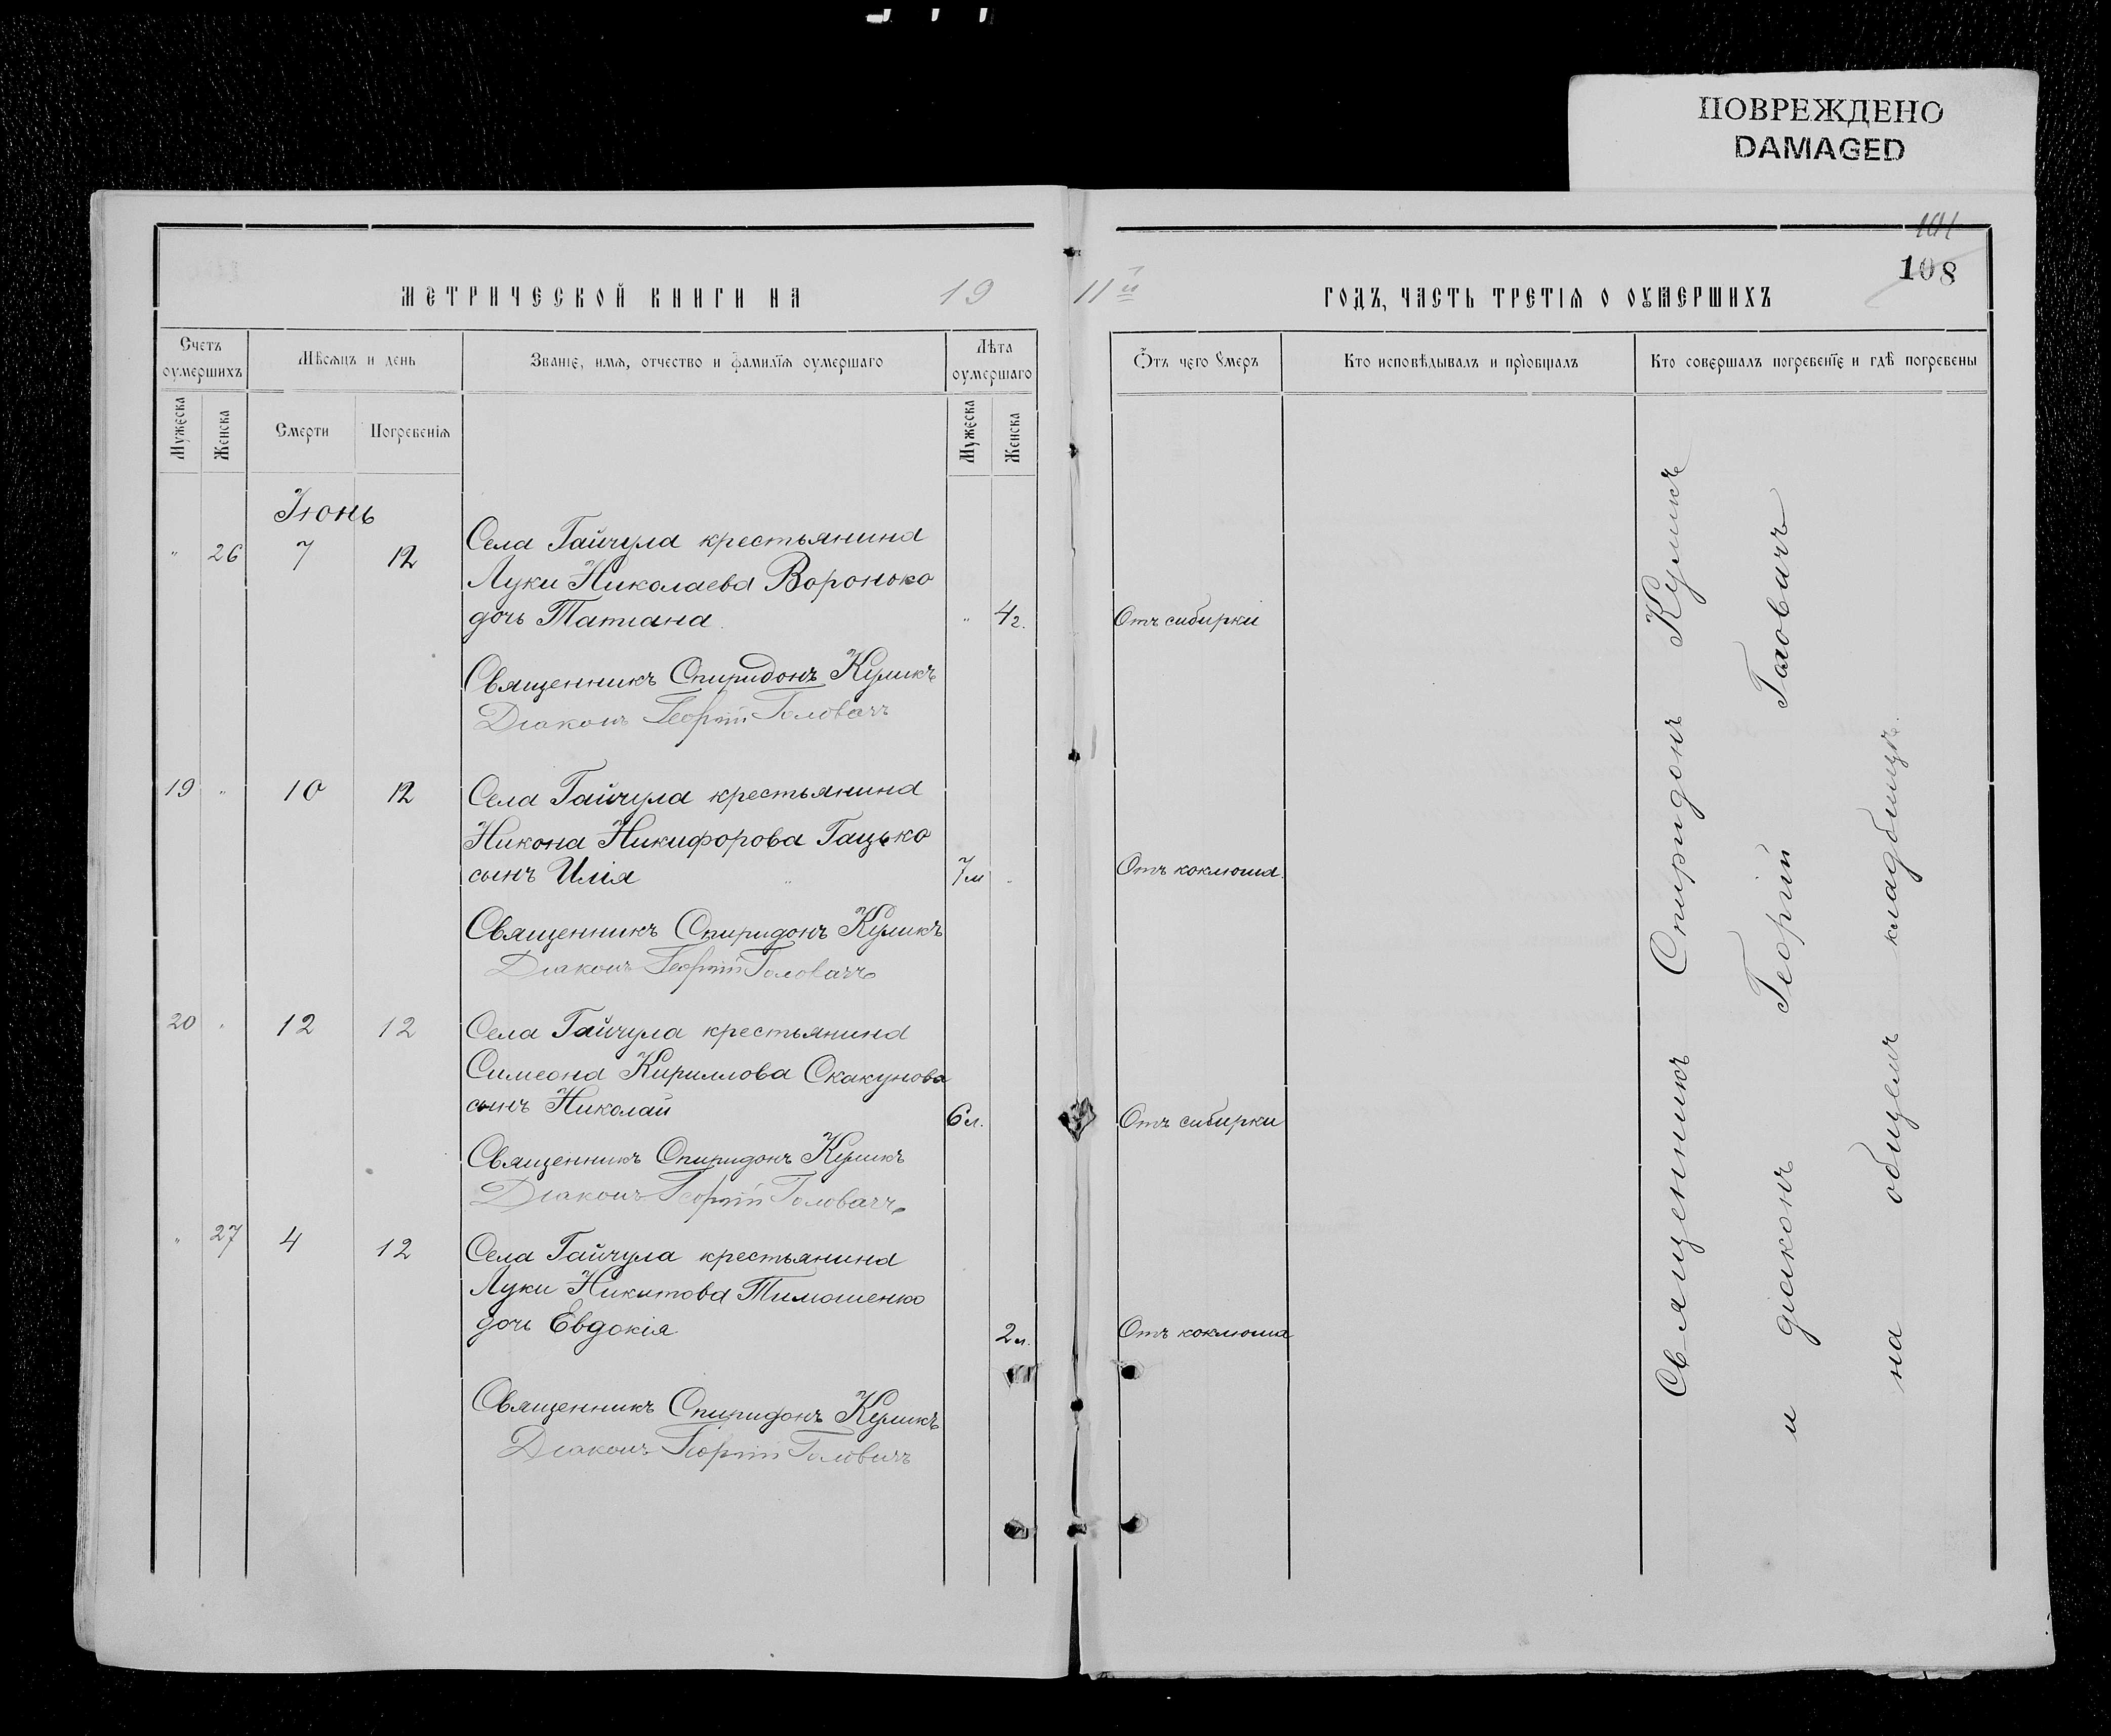 ПОВРЕЖДЕНО
DAMAGED
101
108
МЕТРИЧЕСКОЙ КНИГИ НА 19
11й ГОДЪ, ЧАСТЬ ТРЕТІѦ О ОУМЕРШИХЪ
Счетъ оумершихъ
Мѣсѧцъ и день
Званіе, имѧ, отчество и фамилїѧ оумершаго
Лѣта оумершаго
Ѿтъ чего Умеръ
Кто исповѣдывалъ и прїобщалъ
Кто совершалъ погребенїе и гдѣ погребены
Мужеска
Женска
Смерти
Погребенїѧ
Мужеска
Женска
Іюнь
" 26 7 12 Села Гайчула крестьянина
Луки Николаева Воронько
дочь Татіана " 4г. Отъ сибирки
Священникъ Спиридонъ Куликъ
Діаконъ Георгій Головачъ
19 " 10 12 Села Гайчула крестьянина
Никона Никифорова Гацько
сынъ Илія 7м " Отъ коклюша.
Священникъ Спиридонъ Куликъ
Діаконъ Георгій Головачъ
20 " 12 12 Села Гайчула крестьянина
Симеона Кириллова Скакунова
сынъ Николай 6л. Отъ сибирки
Священникъ Спиридонъ Куликъ
Діаконъ Георгій Головачъ
" 27 4 12 Села Гайчула крестьянина
Луки Никитова Тимошенко
дочь Евдокія 2л. Отъ коклюша
Священникъ Спиридонъ Куликъ
Діаконъ Георгій Головачъ
Священникъ Спиридонъ Куликъ
и діаконъ Георгій Головачъ
на общемъ кладбищѣ.